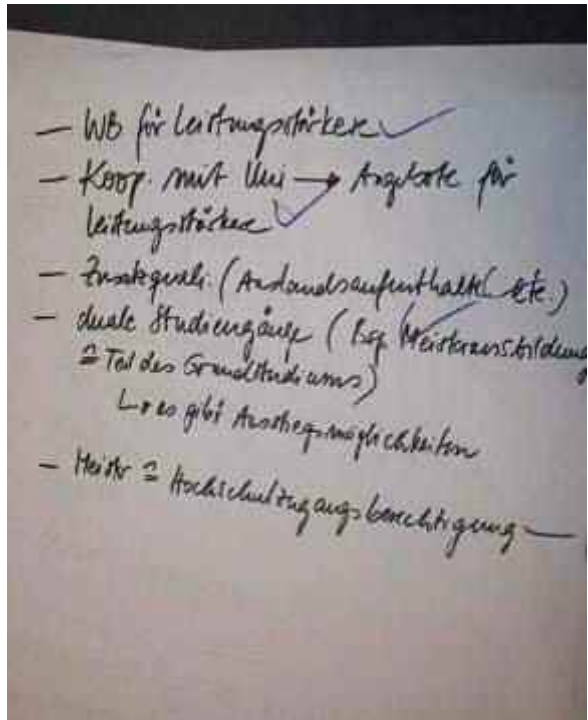 — WB für Leistungsstärkere
— Koop. mit Uni → Angebote für
Leistungsstärkere
— Zusatzquali. (Auslandsaufenthalte etc.)
— duale Studiengänge (Bsp. Meisterausbildung
≙ Teil des Grundstudiums)
↳ es gibt Ausstiegsmöglichkeiten
— Meister ≙ Hochschulzugangsberechtigung —